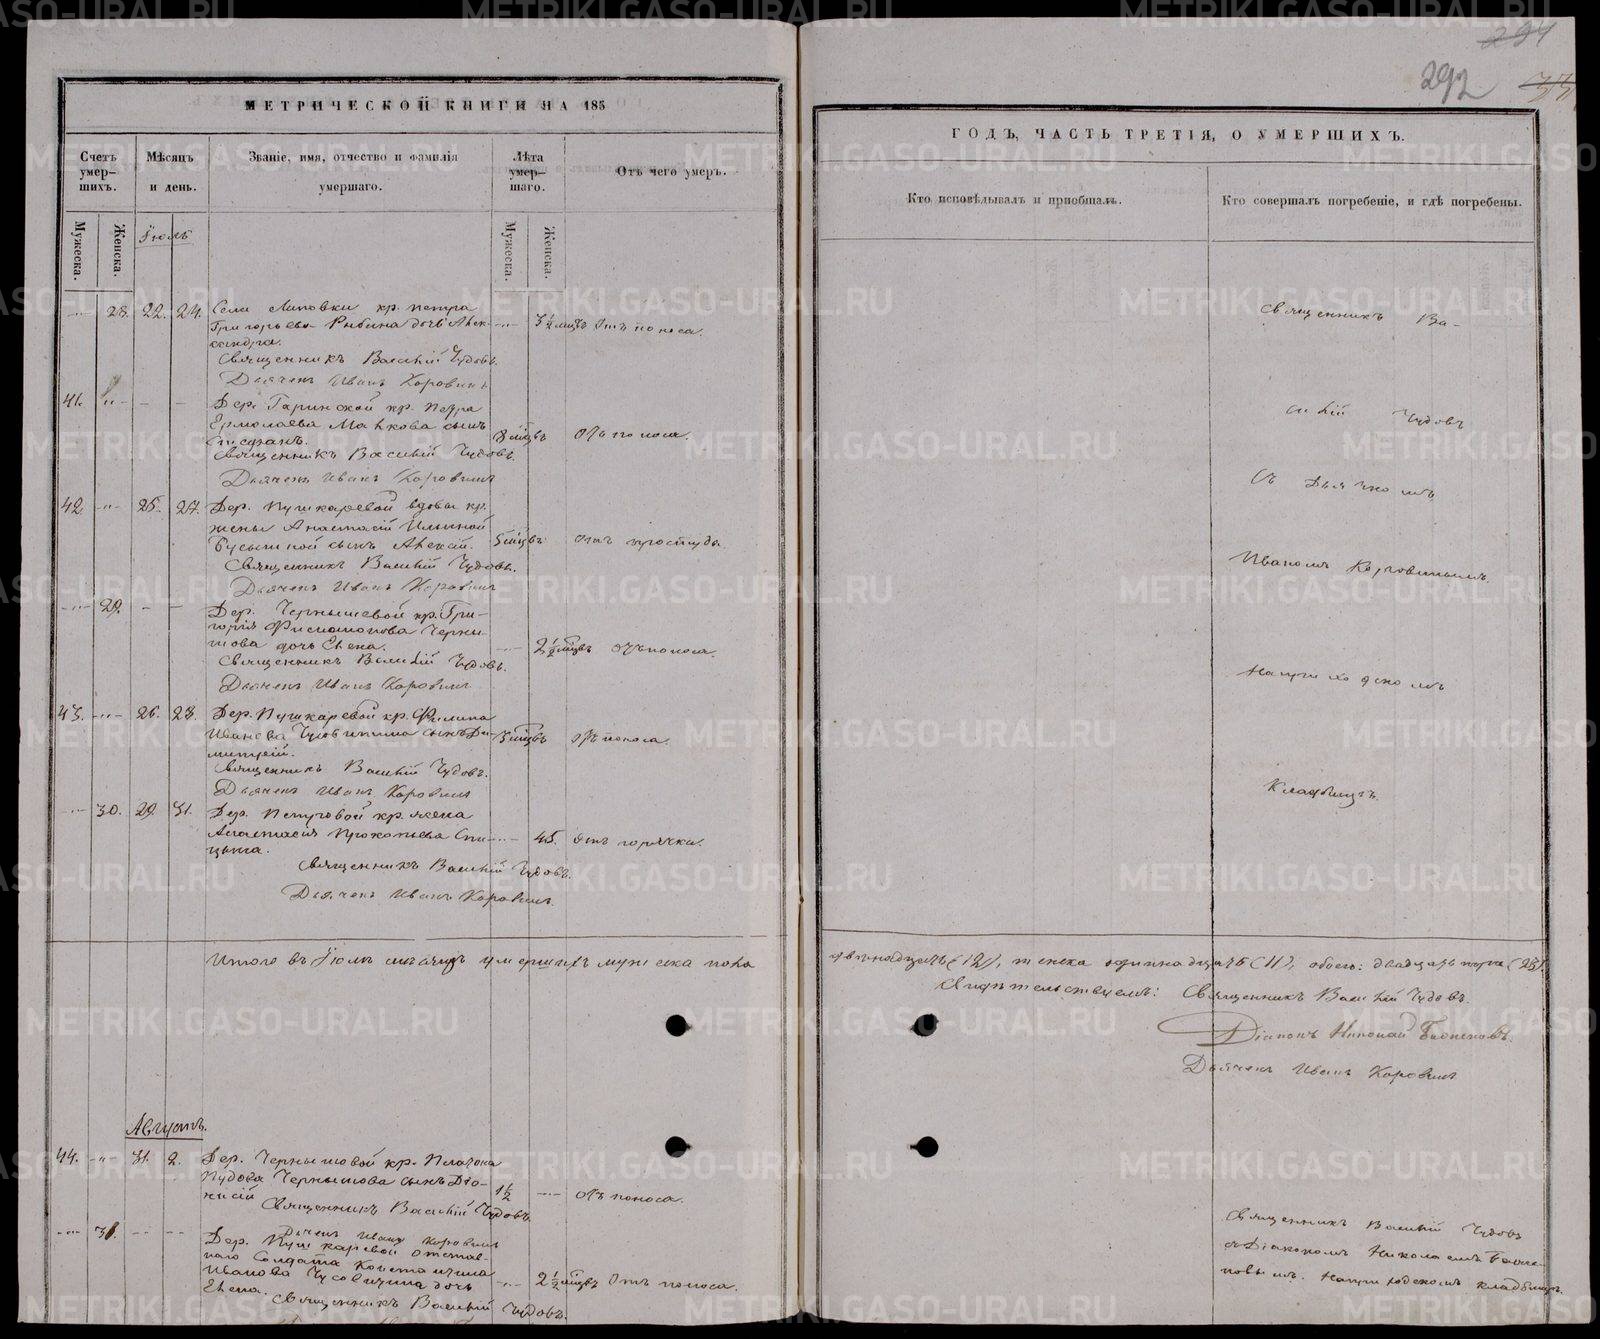 МЕТРИЧЕСКОЙ КНИГИ НА 185
Счетъ умер-шихъ.
Мѣсяцъ и день.
Званіе, имя, отчество и фамилія умершаго.
Лѣта умер-шаго.
Отъ чего умеръ.
Мужеска.
Женска.
Іюль
Мужеска.
Женска.
28. 22. 24. Села Липовки кр. Петра
Григорьева Рябина дочь Алек- 3½ мцъ Отъ поноса.
сандра.
Священникъ Василій Чудовъ.
Дьячекъ Иванъ Коровинъ
41. Дер. Гаринской кр. Петра
Ермолаева Малкова сынъ
Стефанъ. 8 мцвъ отъ поноса.
Священникъ Василій Чудовъ.
Дьячекъ Иванъ Коровинъ
42. 25. 27. Дер. Пушкаревой вдовы кр.
жены Анастасіи Ильиной
сынъ Алексій. 5 мцвъ отъ простуды
Священникъ Василій Чудовъ.
Дьячекъ Иванъ Коровинъ
29. Дер. Чернышевой кр. Гри-
горія Черны-
шова дочь Елена. 2½ мцвъ отъ поноса.
Священникъ Василій Чудовъ.
Дьячекъ Иванъ Коровинъ
43. 26. 28. Дер. Пушкаревой кр. Филипа
Иванова Чусовитина сынъ Ди-
митрій. 5 мцвъ отъ поноса.
Священникъ Василій Чудовъ.
Дьячекъ Иванъ Коровинъ
30. 29. 31. Дер. кр. жена
Анастасія Прокопьева Спи-
цына. 45. отъ горячки.
Священникъ Василій Чудовъ.
Дьячекъ Иванъ Коровинъ.
Итого въ Іюлѣ мѣсяцѣ умершихъ мужеска пола
Августъ.
44. 31. 2. Дер. Чернышовой кр. Платона
Пудова Чернышова сынъ Діо-
нисій 1½ отъ поноса.
Священникъ Василій Чудовъ.
Дьячекъ Иванъ Коровинъ
31. Дер. Пушкаревой отстав-
наго Солдата Константина
Иванова Чусовитина дочь
Елена. 2½ мцвъ Отъ поноса.
Священникъ Василій Чудовъ.
294
292
ГОДЪ, ЧАСТЬ ТРЕТІЯ, О УМЕРШИХЪ.
Кто исповѣдывалъ и пріобщалъ.
Кто совершалъ погребеніе, и гдѣ погребены.
Священникъ Ва-
силій Чудовъ
съ Дьячкомъ
Иваномъ Коровинымъ
на приходскомъ
кладбищѣ.
двѣнадцать (12), женска одиннадцать (11), обоего: двадцать три (23).
Свидѣтельствуемъ: Священникъ Василій Чудовъ.
Діаконъ Николай
Дьячекъ Иванъ Коровинъ
Священникъ Василій Чудовъ
съ Діакономъ Николаемъ
на приходскомъ кладбищѣ.
METRIKI.GASO-URAL.RU